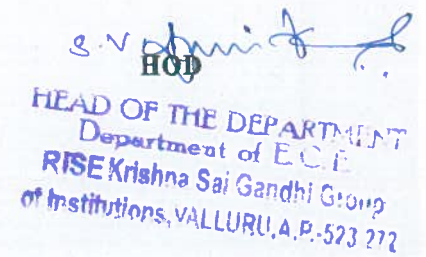 S.V
HOD
HEAD OF THE DEPARTMENT
Department of E.C.E
RISE Krishna Sai Gandhi Group
of Institutions, VALLURU, A.P.-523 272